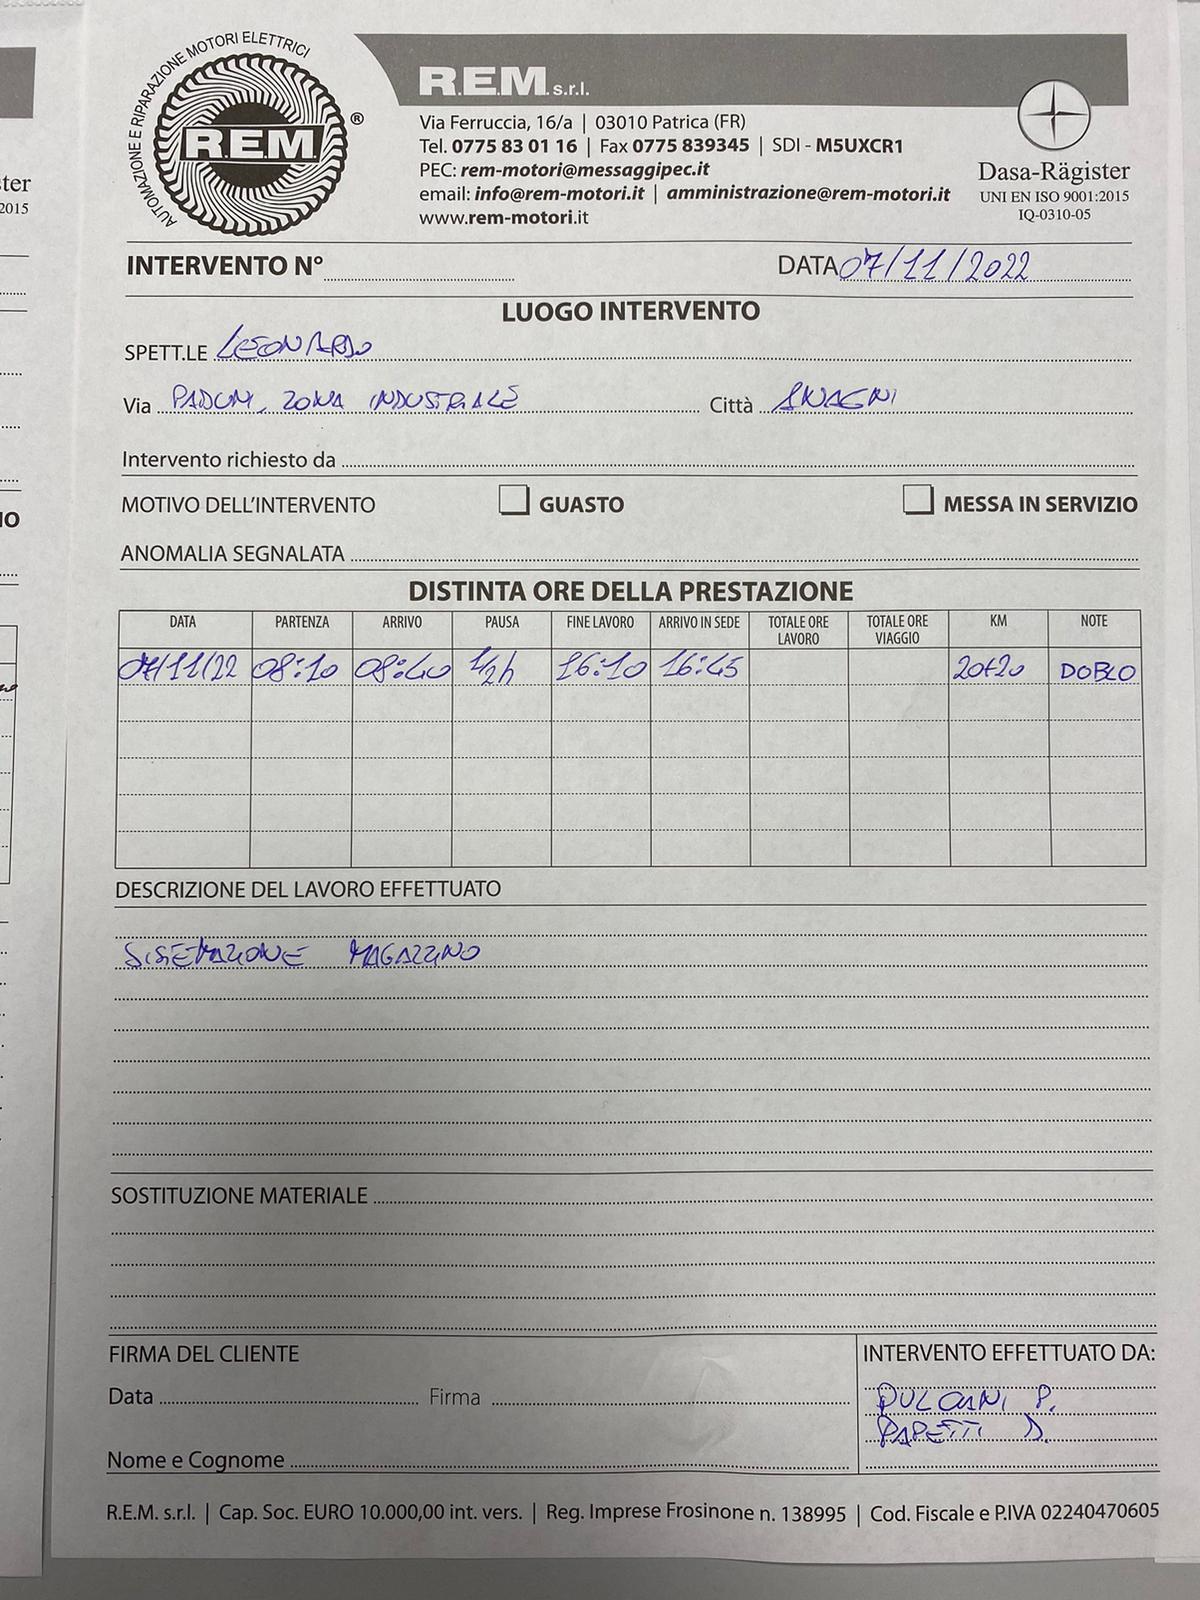 AUTOMAZIONE E RIPARAZIONE MOTORI ELETTRICI
R.E.M. ®
R.E.M. s.r.l.
Via Ferruccia, 16/a | 03010 Patrica (FR)
Tel. 0775 83 01 16 | Fax 0775 839345 | SDI - M5UXCR1
PEC: rem-motori@messaggipec.it
email: info@rem-motori.it | amministrazione@rem-motori.it
www.rem-motori.it
Dasa-Rägister
UNI EN ISO 9001:2015
IQ-0310-05
ster
2015
INTERVENTO N° DATA 07/11/2022
LUOGO INTERVENTO
SPETT.LE LEONARDO
Via PADUNI, ZONA INDUSTRIALE Città ANAGNI
Intervento richiesto da
MOTIVO DELL'INTERVENTO GUASTO MESSA IN SERVIZIO
ANOMALIA SEGNALATA
DISTINTA ORE DELLA PRESTAZIONE
DATA PARTENZA ARRIVO PAUSA FINE LAVORO ARRIVO IN SEDE TOTALE ORE LAVORO TOTALE ORE VIAGGIO KM NOTE
07/11/22 08:10 08:40 1/2h 16:10 16:45 20+20 DOBLO
DESCRIZIONE DEL LAVORO EFFETTUATO
SISTEMAZIONE MAGAZZINO
SOSTITUZIONE MATERIALE
FIRMA DEL CLIENTE
Data Firma
Nome e Cognome
INTERVENTO EFFETTUATO DA:
PULCIANI P.
PAPETTI D.
R.E.M. s.r.l. | Cap. Soc. EURO 10.000,00 int. vers. | Reg. Imprese Frosinone n. 138995 | Cod. Fiscale e P.IVA 02240470605